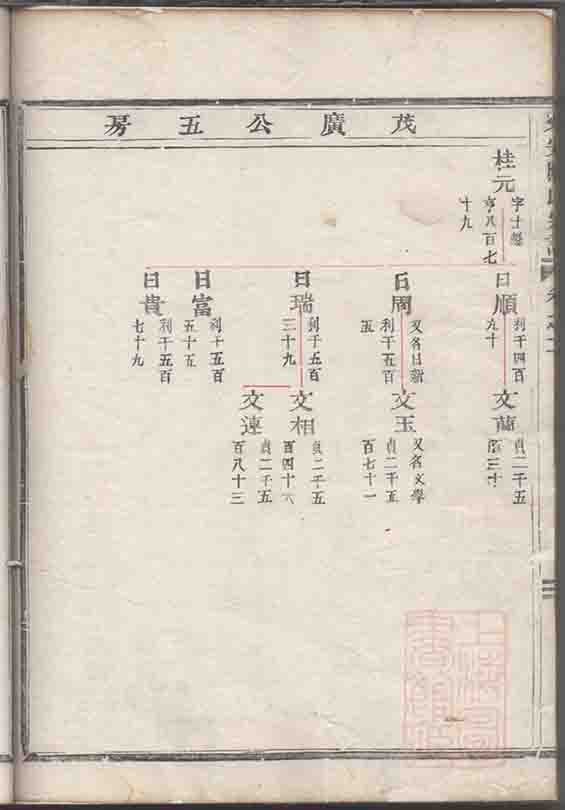 茂廣公五房
桂元
字士
亨八百七
十九
日順
利千四百
九十
日周
又名日新
利千五百
五
日瑞
利千五百
三十九
日富
利千五百
五十五
日貴
利千五百
七十九
文蘭
貞二千五
百三十
文玉
又名文學
貞二千五
百七十一
文相
貞二千五
百四十六
文連
貞二千五
百八十三